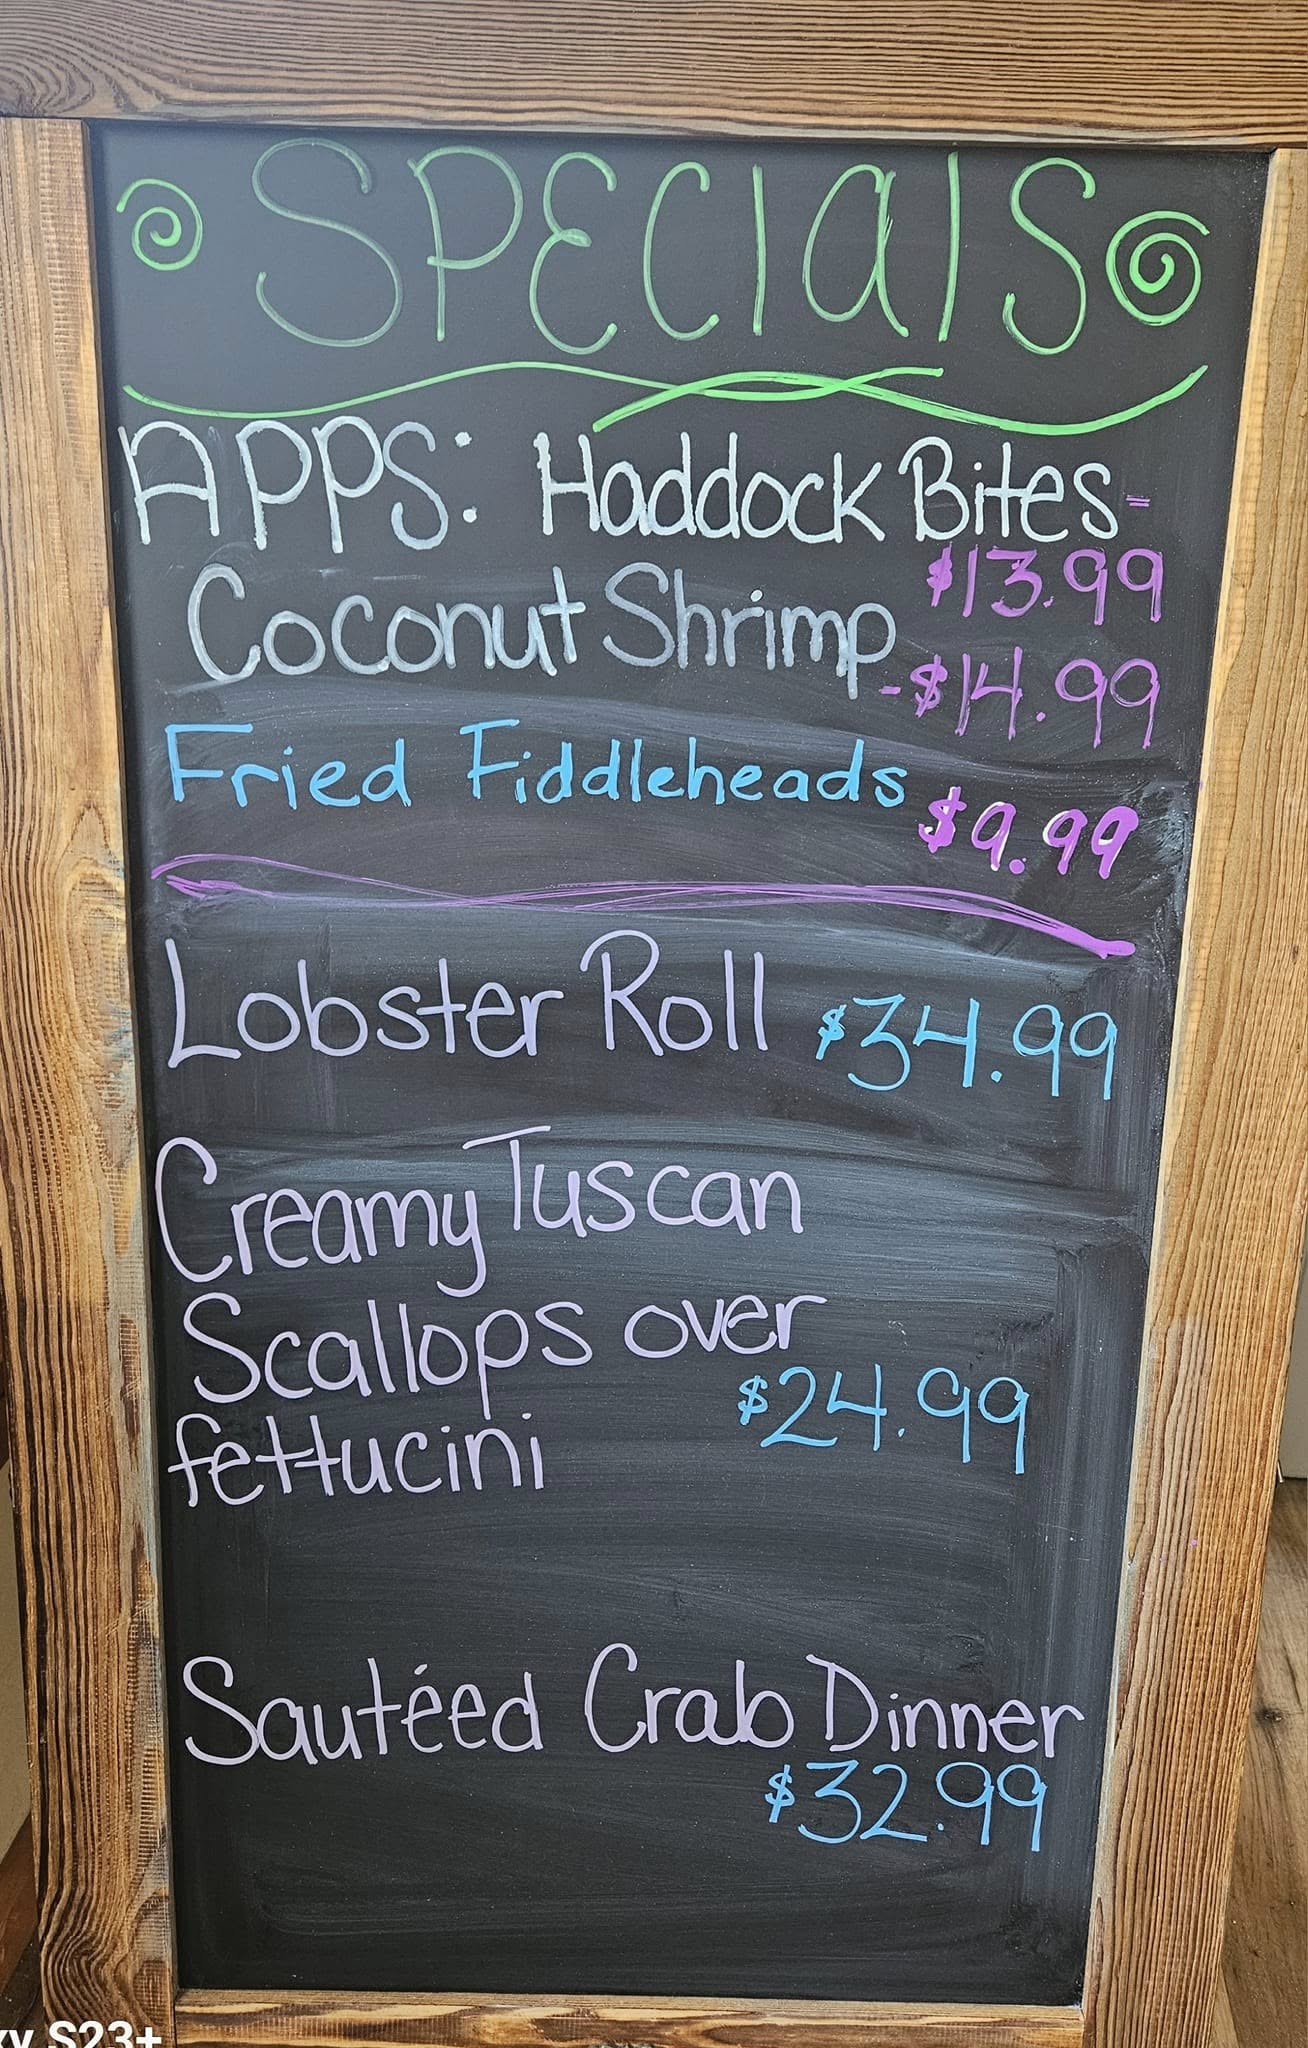 SPECIALS
APPS: Haddock Bites -
$13.99
Coconut Shrimp
- $14.99
Fried Fiddleheads
$9.99
Lobster Roll $34.99
Creamy Tuscan
Scallops over
$24.99
fettucini
Sautéed Crab Dinner
$32.99
S23+